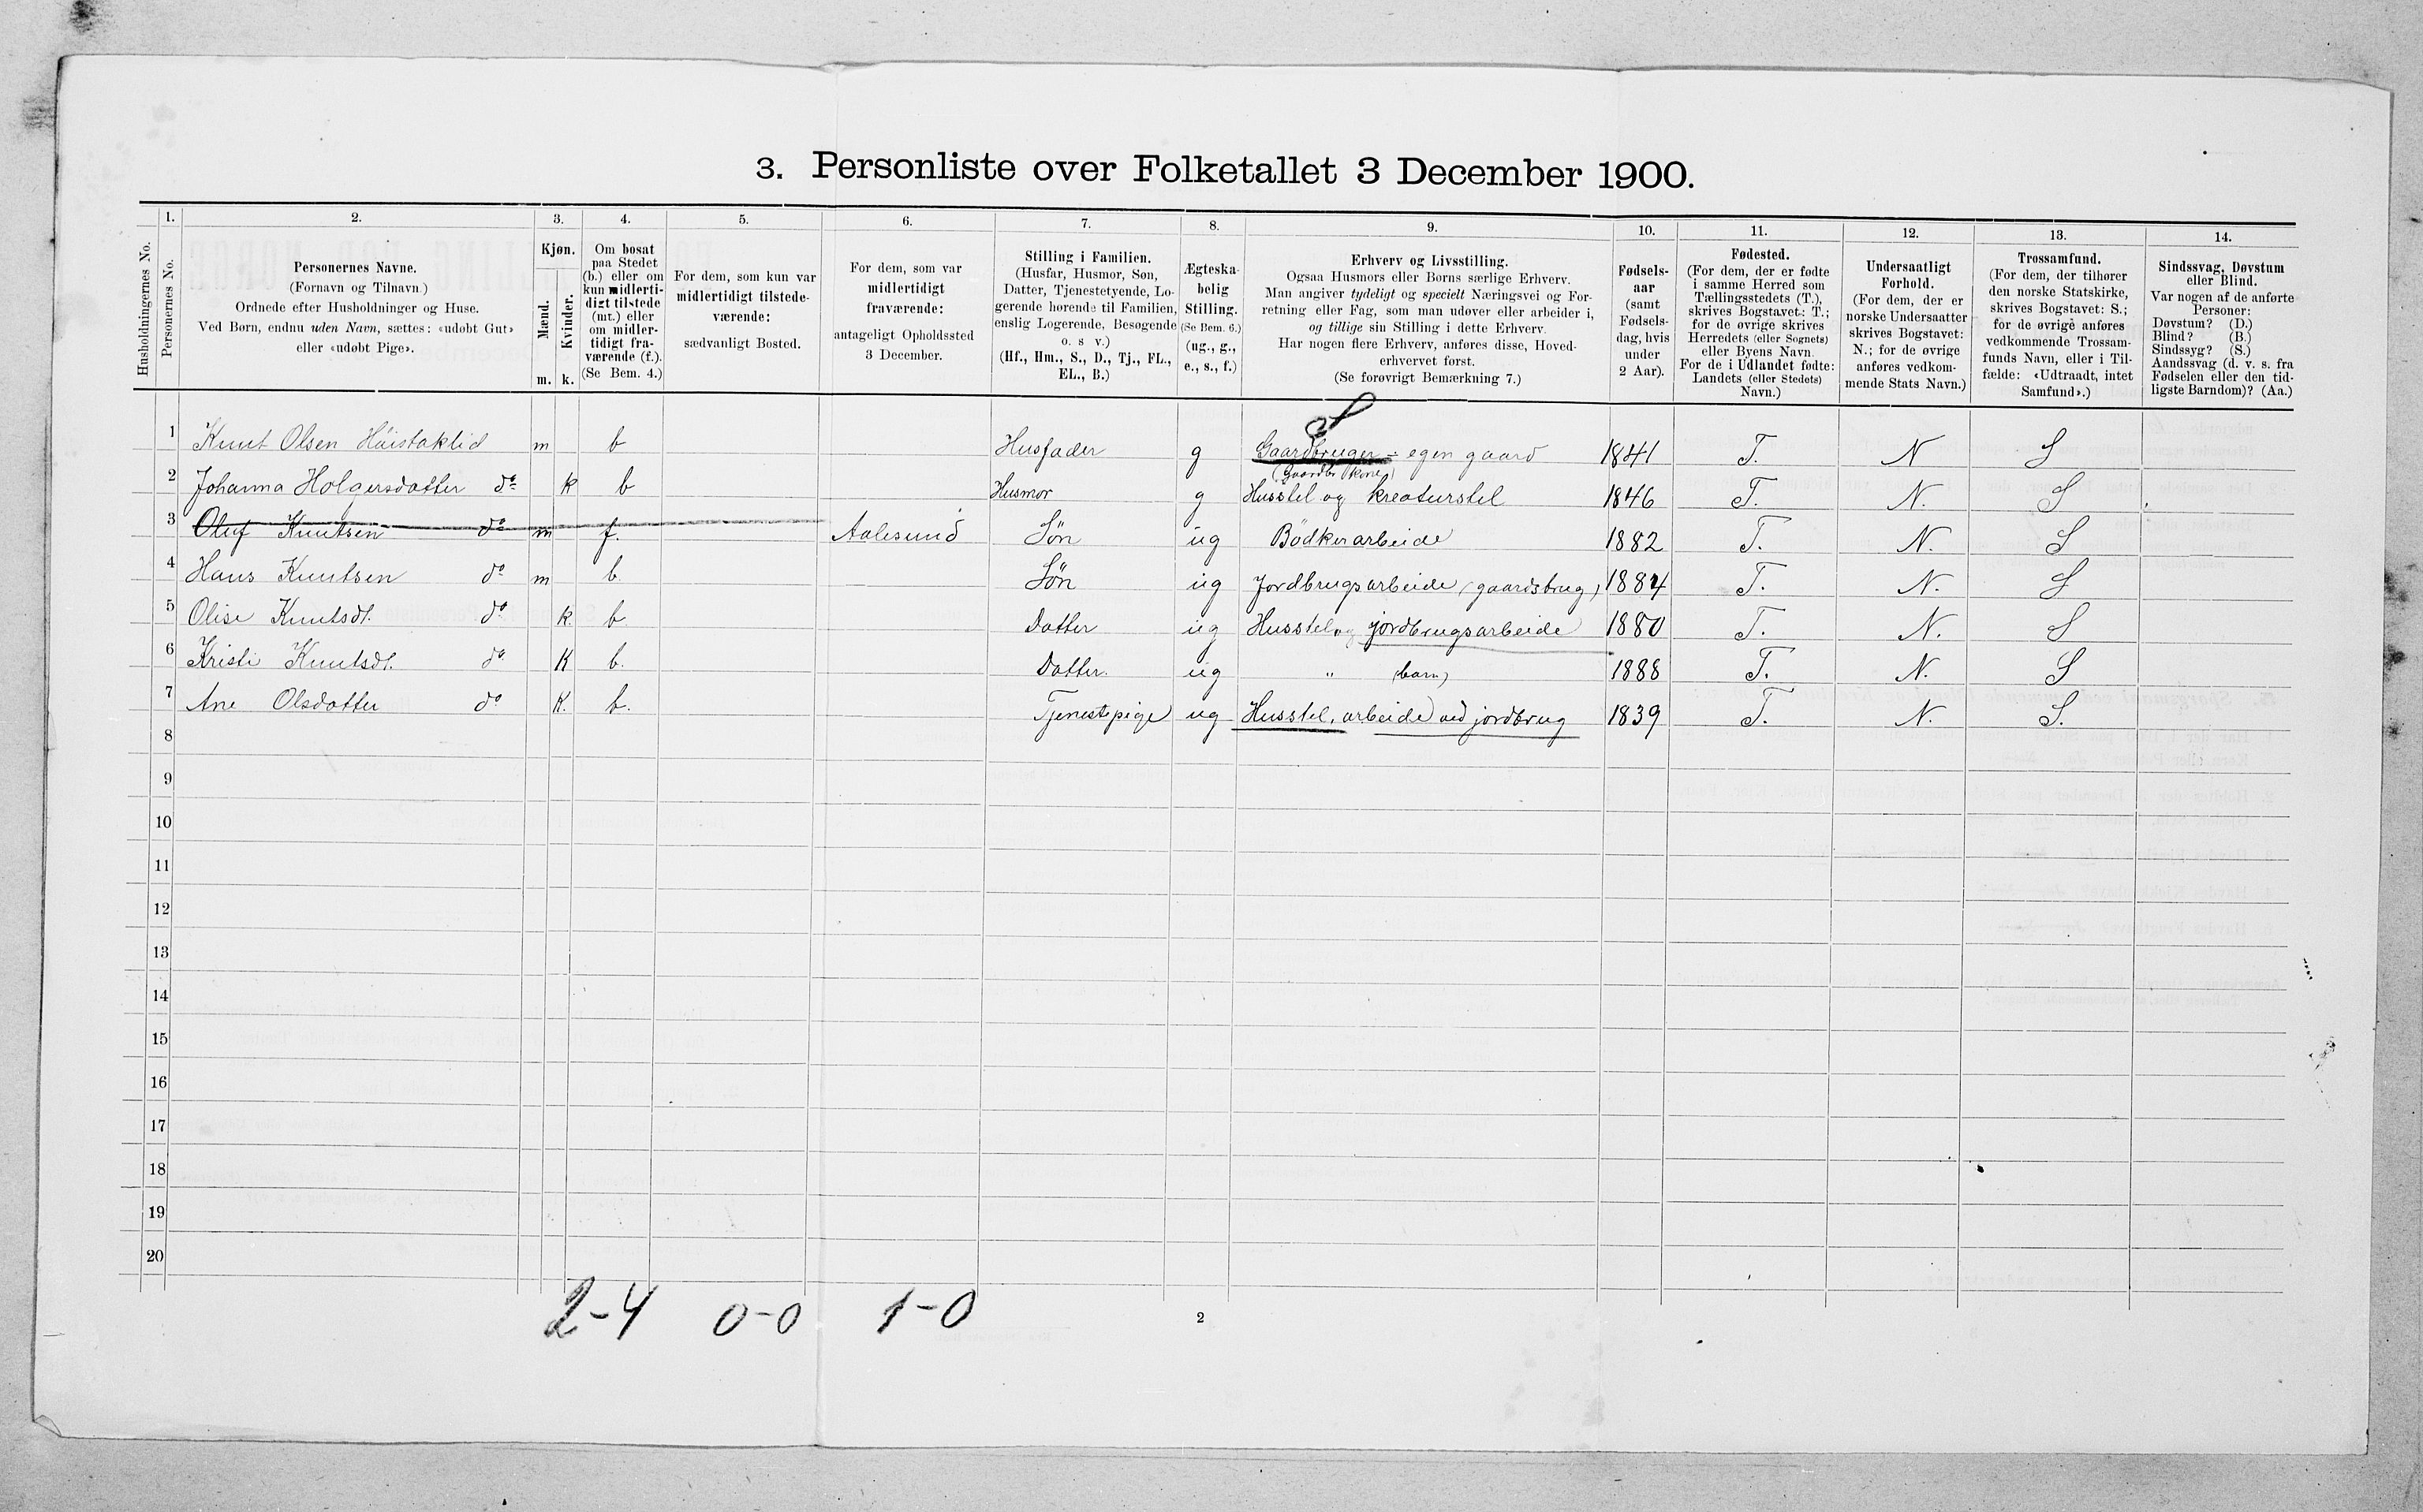 3. Personliste over Folketallet 3 December 1900.
Husholdningernes No.
1.
Personernes No.
2.
Personernes Navne.
(Fornavn og Tilnavn.)
Ordnede efter Husholdninger og Huse.
Ved Børn, endnu uden Navn, sættes: «udøbt Gut»
eller «udøbt Pige».
3.
Kjøn.
Mænd.
Kvinder.
m. k.
4.
Om bosat
paa Stedet
(b.) eller om
kun midlerti-
digt tilstede
(mt.) eller
om midler-
tidigt fra-
værende (f.).
(Se Bem. 4.)
5.
For dem, som kun var
midlertidigt tilstede-
værende:
sædvanligt Bosted.
6.
For dem, som var
midlertidigt
fraværende:
antageligt Opholdssted
3 December.
7.
Stilling i Familien.
(Husfar, Husmor, Søn,
Datter, Tjenestetyende, Lo-
gerende hørende til Familien,
enslig Logerende, Besøgende
o. s v.)
(Hf., Hm., S., D., Tj., FL.,
EL., B.)
8.
Ægteska-
belig
Stilling.
(Se Bem. 6.)
(ug., g.,
e., s., f.)
9.
Erhverv og Livsstilling.
Ogsaa Husmors eller Børns særlige Erhverv.
Man angiver tydeligt og specielt Næringsvei og For-
retning eller Fag, som man udøver eller arbeider i,
og tillige sin Stilling i dette Erhverv.
Har nogen flere Erhverv, anføres disse, Hoved-
erhvervet først.
(Se forøvrigt Bemærkning 7.)
10.
Fødsels-
aar
(samt
Fødsels-
dag, hvis
under
2 Aar).
11.
Fødested.
(For dem, der er fødte
i samme Herred som
Tællingsstedets (T.),
skrives Bogstavet: T.;
for de øvrige skrives
Herredets (eller Sognets)
eller Byens Navn.
For de i Udlandet fødte:
Landets (eller Stedets)
Navn.)
12.
Undersaatligt
Forhold.
(For dem, der er
norske Undersaatter
skrives Bogstavet:
N.; for de øvrige
anføres vedkom-
mende Stats Navn.)
13.
Trossamfund.
(For dem, der tilhører
den norske Statskirke,
skrives Bogstavet: S.;
for de øvrige anføres
vedkommende Trossam-
funds Navn, eller i Til-
fælde: «Udtraadt, intet
Samfund».)
14.
Sindssvag, Døvstum
eller Blind.
Var nogen af de anførte
Personer:
Døvstum? (D.)
Blind? (B.)
Sindssyg? (S.)
Aandssvag (d. v. s. fra
Fødselen eller den tid-
ligste Barndom)? (Aa.)
S
1 Knut Olsen Höistaklid m b Husfader g Gaardbruger - egen gaard 1841 T. N S
(Gaardbr kone)
2 Johanna Holgersdatter do k b Husmor g Husstel og kreaturstel 1846 T. N. S
3 Oluf Knutsen do m f. Aalesund Sön ug Bödkerarbeide 1882 T. N. S
4 Hans Knutsen do m b Sön ug Jordbrugsarbeide (gaardsbrug) 1884 T. N. S
5 Olise Knutsdt. do k b Datter ug Husstel og jordbrugsarbeide 1880 T. N. S
6 Kristi Knutsdt. do K b. Datter. ug " (barn) 1888 T. N. S
7 Ane Olsdatter do K. b. Tjenestepige ug Husstel, arbeide ved jordbrug 1839 T. N. S.
8
9
10
11
12
13
14
15
16
17
18
19
20
2-4 0-0 1-0
2